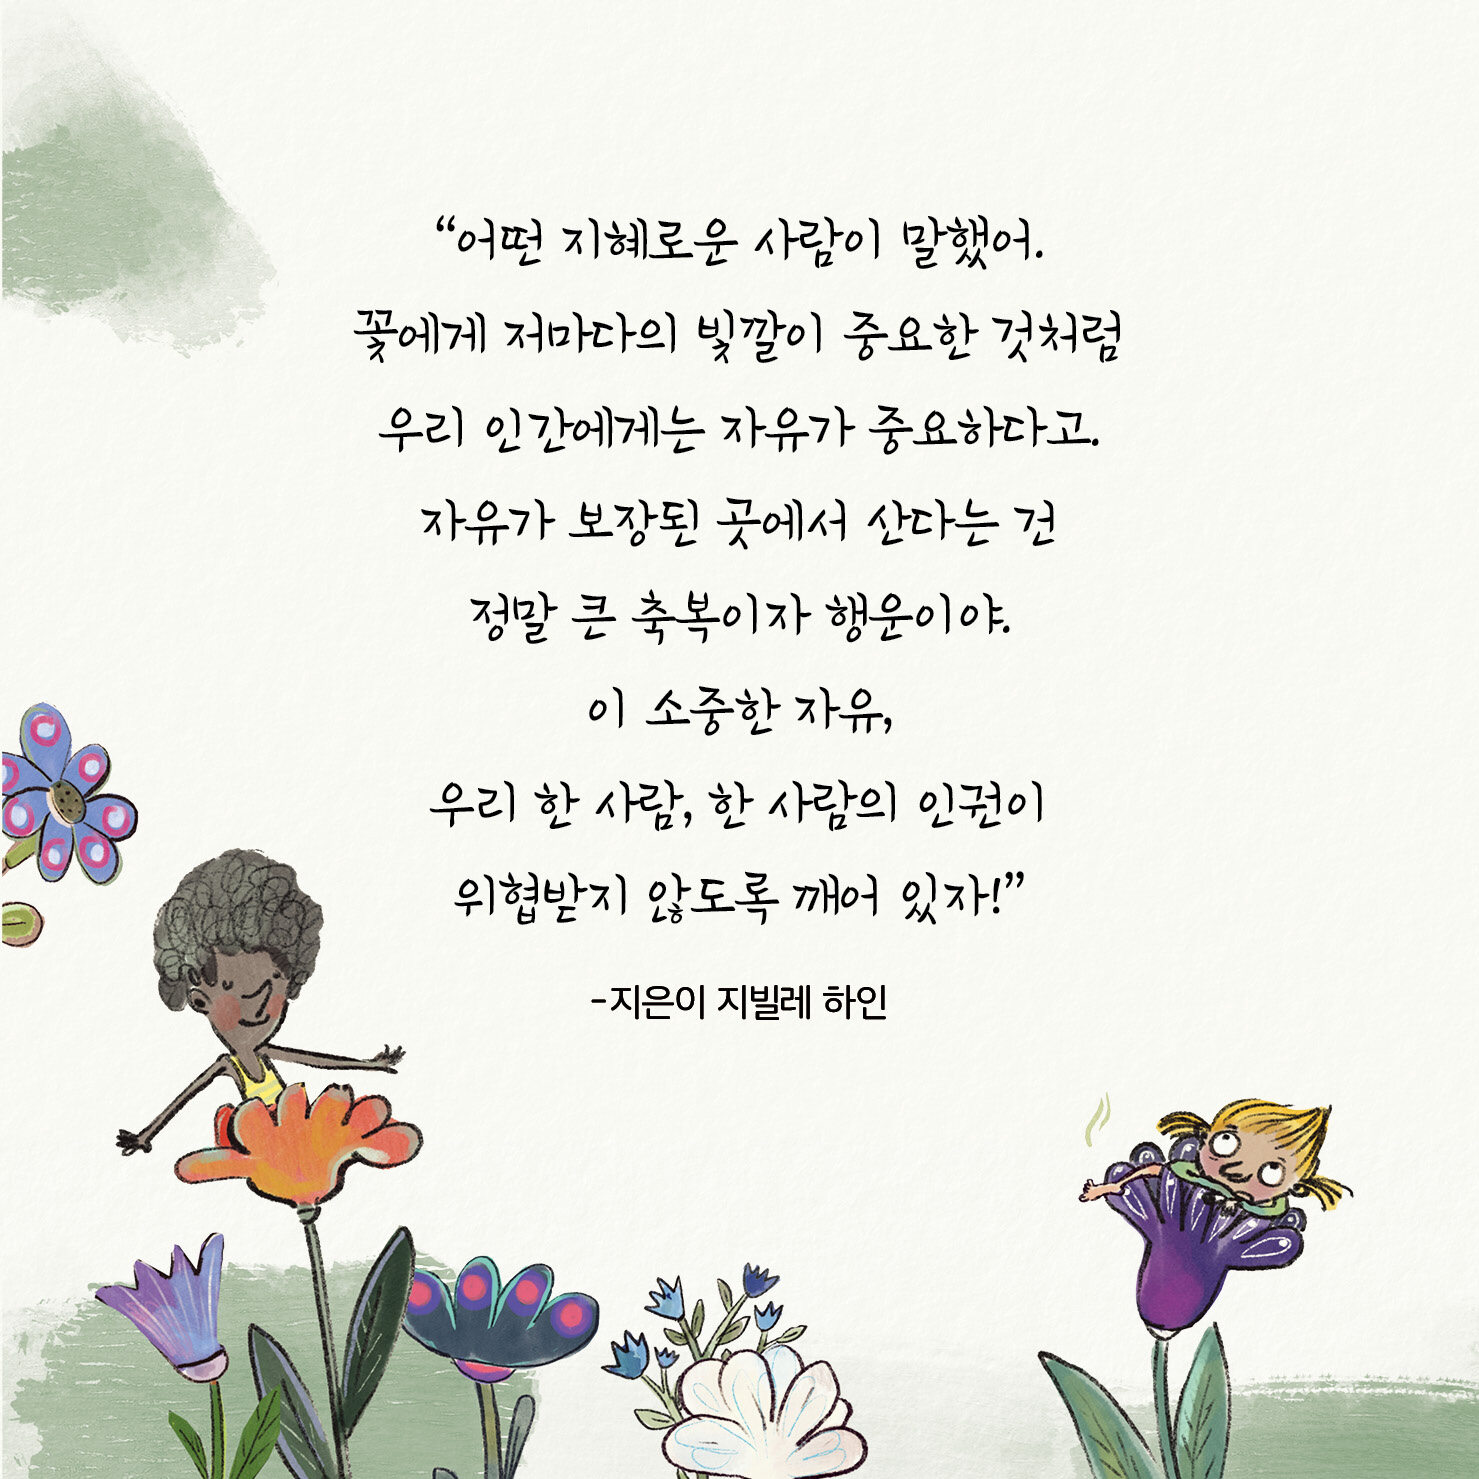 “어떤 지혜로운 사람이 말했어.
꽃에게 저마다의 빛깔이 중요한 것처럼
우리 인간에게는 자유가 중요하다고.
자유가 보장된 곳에서 산다는 건
정말 큰 축복이자 행운이야.
이 소중한 자유,
우리 한 사람, 한 사람의 인권이
위협받지 않도록 깨어 있자!”
-지은이 지빌레 하인